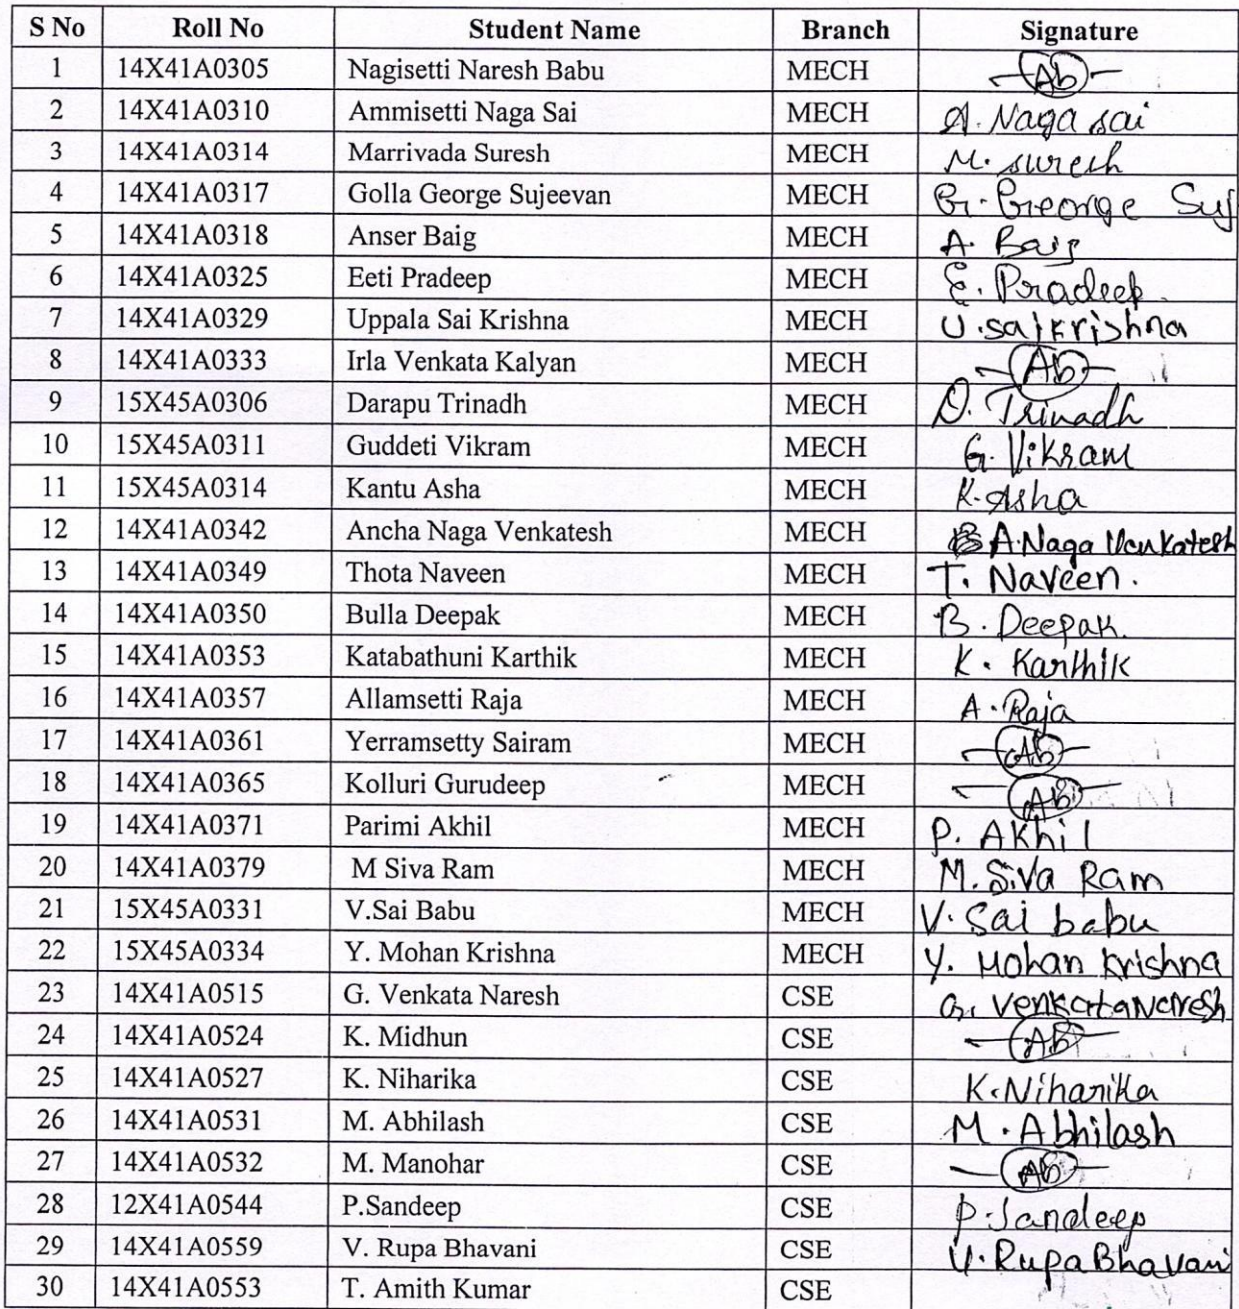 S No Roll No Student Name Branch Signature
1 14X41A0305 Nagisetti Naresh Babu MECH Ab
2 14X41A0310 Ammisetti Naga Sai MECH A. Naga sai
3 14X41A0314 Marrivada Suresh MECH M. suresh
4 14X41A0317 Golla George Sujeevan MECH G. George Suj
5 14X41A0318 Anser Baig MECH A. Baig
6 14X41A0325 Eeti Pradeep MECH E. Pradeep.
7 14X41A0329 Uppala Sai Krishna MECH U. saikrishna
8 14X41A0333 Irla Venkata Kalyan MECH Ab
9 15X45A0306 Darapu Trinadh MECH D. Trinadh
10 15X45A0311 Guddeti Vikram MECH G. Vikram
11 15X45A0314 Kantu Asha MECH K. Asha
12 14X41A0342 Ancha Naga Venkatesh MECH A. Naga Venkatesh
13 14X41A0349 Thota Naveen MECH T. Naveen.
14 14X41A0350 Bulla Deepak MECH B. Deepak.
15 14X41A0353 Katabathuni Karthik MECH K. Karthik
16 14X41A0357 Allamsetti Raja MECH A. Raja
17 14X41A0361 Yerramsetty Sairam MECH Ab
18 14X41A0365 Kolluri Gurudeep MECH Ab
19 14X41A0371 Parimi Akhil MECH P. Akhil
20 14X41A0379 M Siva Ram MECH M. Siva Ram
21 15X45A0331 V.Sai Babu MECH V. Sai babu
22 15X45A0334 Y. Mohan Krishna MECH Y. Mohan krishna
23 14X41A0515 G. Venkata Naresh CSE G. Venkata Naresh
24 14X41A0524 K. Midhun CSE AB
25 14X41A0527 K. Niharika CSE K. Niharika
26 14X41A0531 M. Abhilash CSE M. Abhilash
27 14X41A0532 M. Manohar CSE Ab
28 12X41A0544 P.Sandeep CSE P. Sandeep
29 14X41A0559 V. Rupa Bhavani CSE V. Rupa Bhavani
30 14X41A0553 T. Amith Kumar CSE